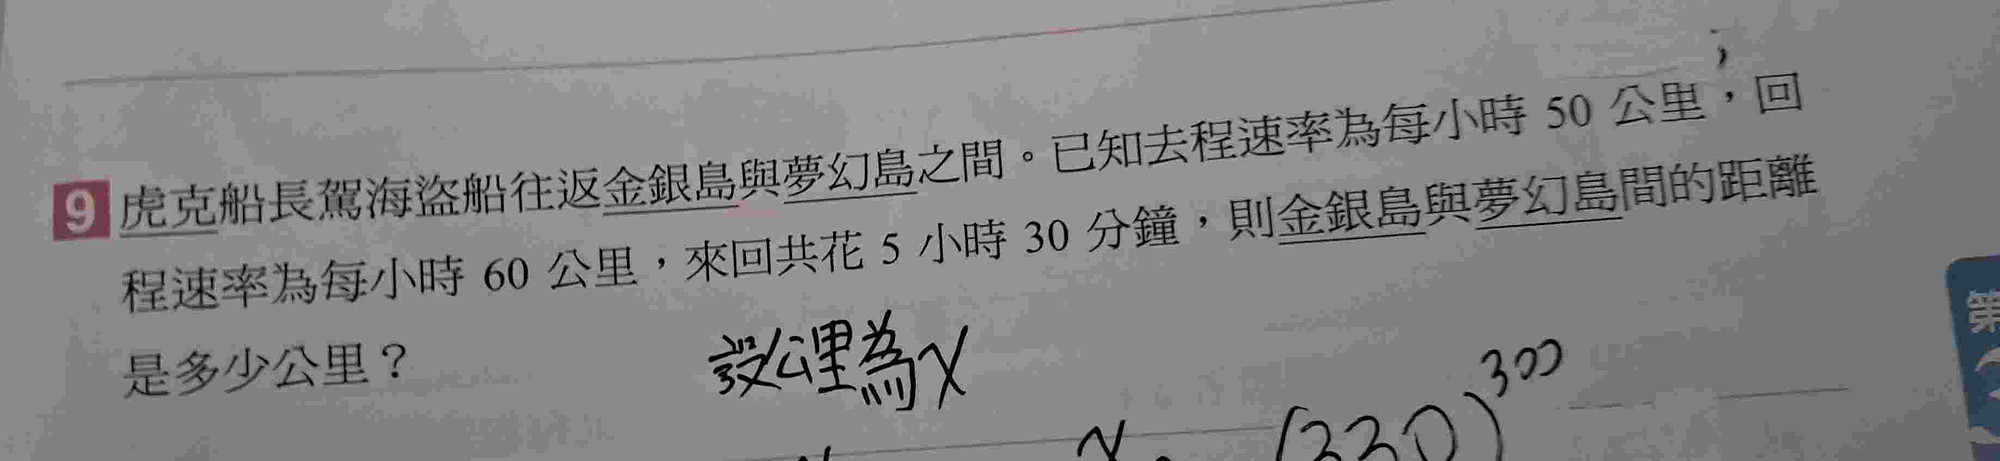 9 虎克船長駕海盜船往返金銀島與夢幻島之間。已知去程速率為每小時 50 公里，回
程速率為每小時 60 公里，來回共花 5 小時 30 分鐘，則金銀島與夢幻島間的距離
是多少公里？
設公里為x
300
x (330)
第